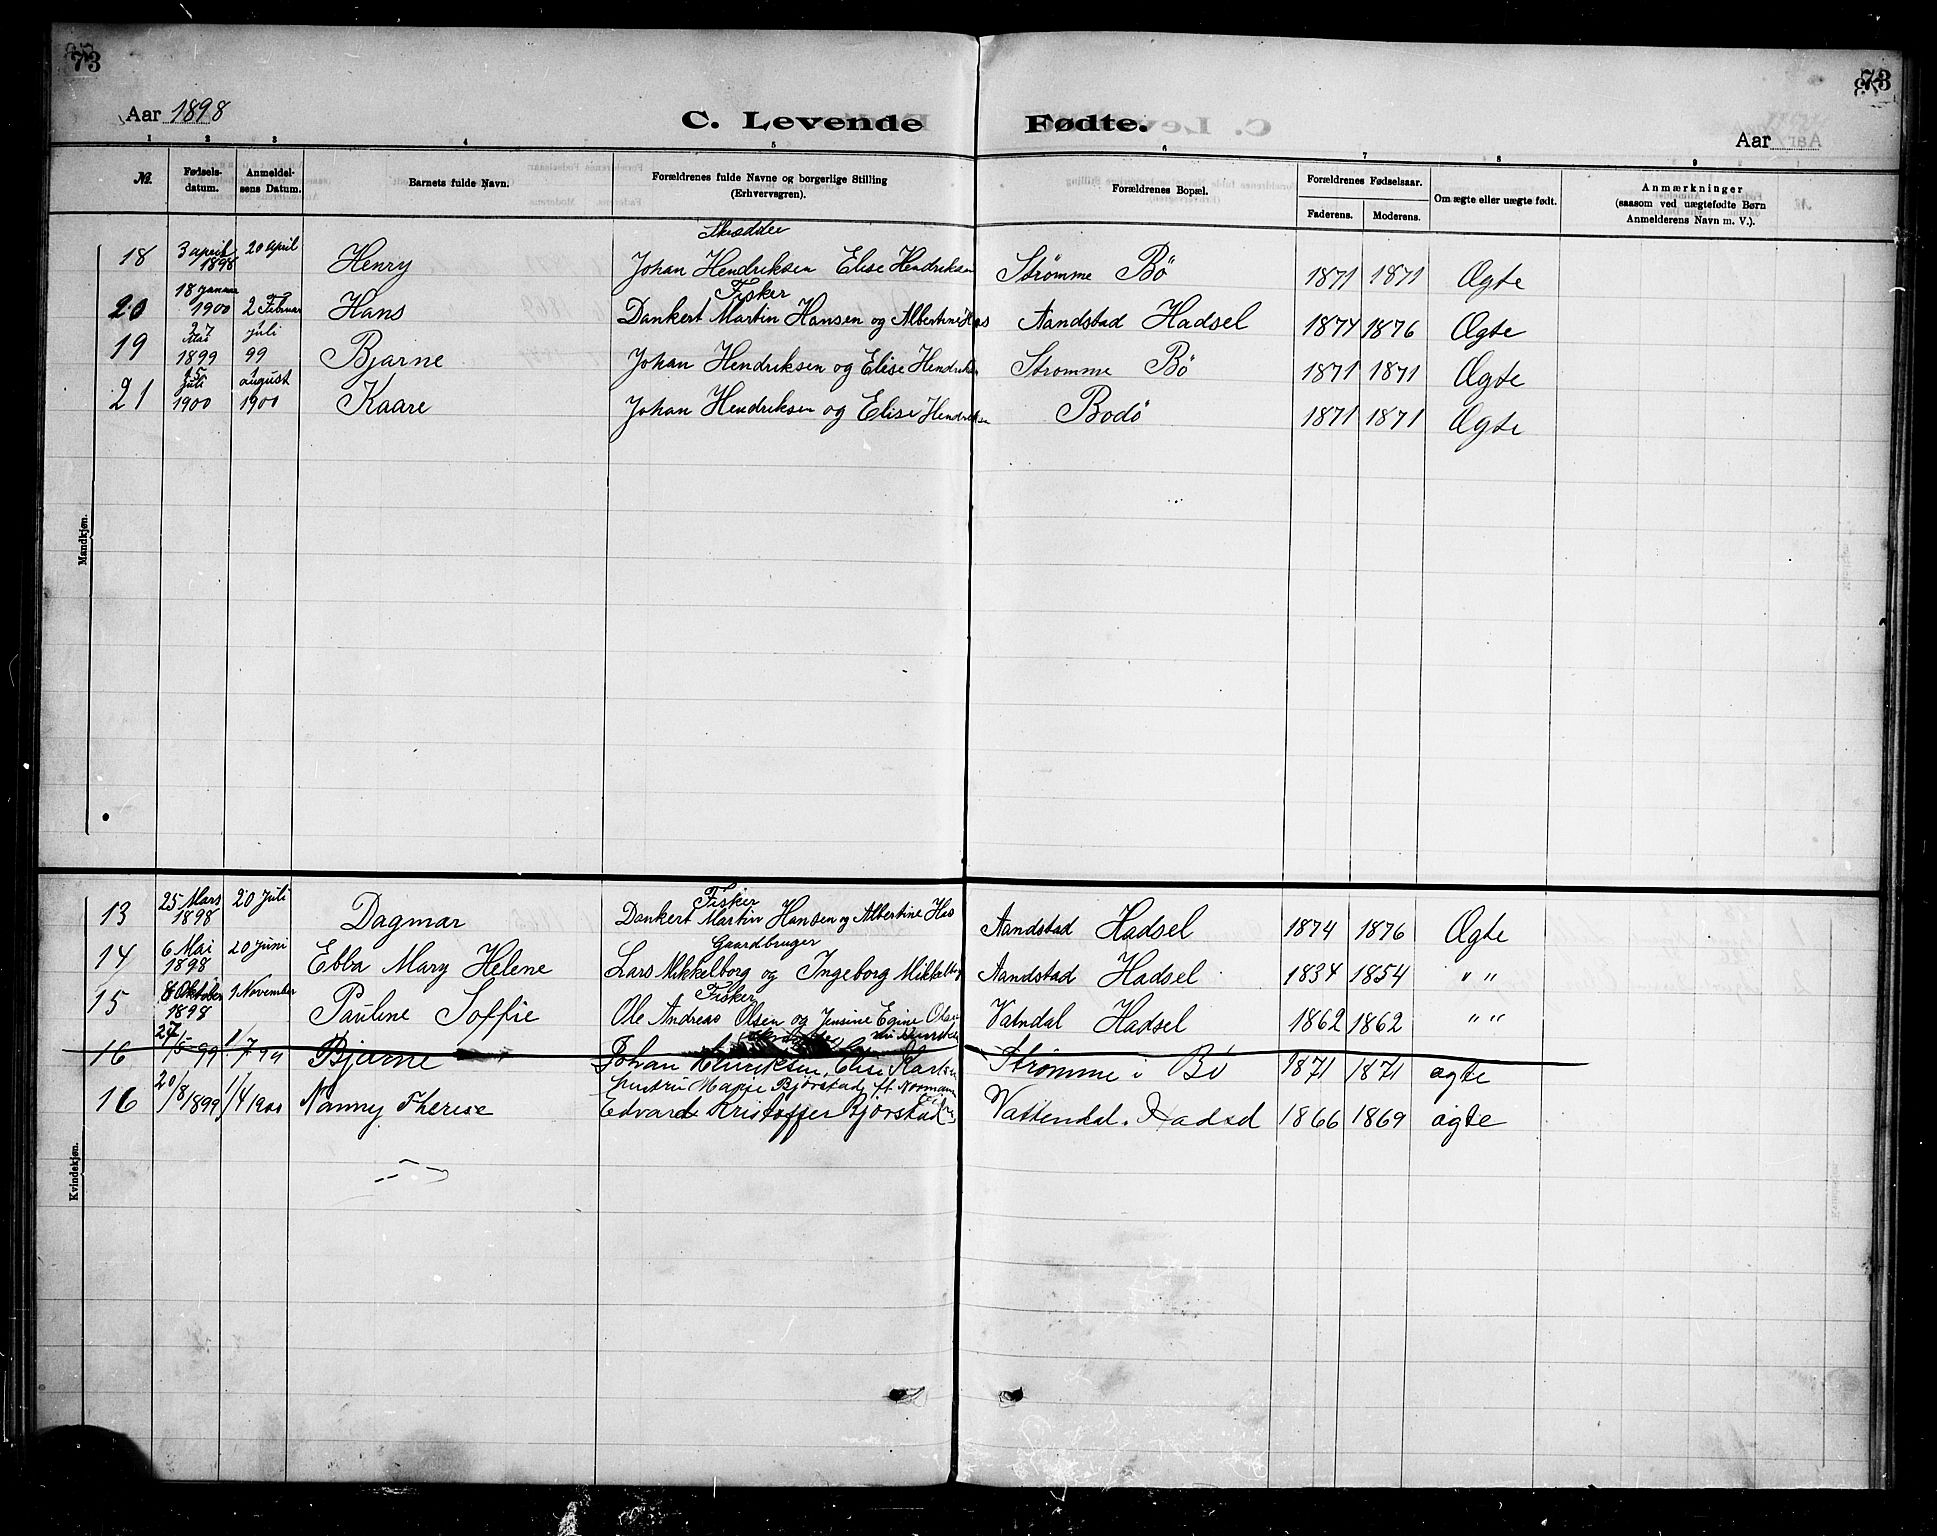 73
73
Aar 1898
C. Levende Fødte.
Aar
1 2 3 4 5 6 7 8 9
№.
Fødsels-datum.
Anmeldel-sens Datum.
Barnets fulde Navn.
Forældrenes fulde Navne og borgerlige Stilling (Erhvervsgren).
Forældrenes Bopæl.
Forældrenes Fødselsaar.
Faderens. Moderens.
Om ægte eller uægte født.
Anmærkninger (saasom ved uægtefødte Børn Anmelderens Navn m. V.).
Mandkjøn.
Skrædder
18 3 april 1898 20 april Henry Johan Hendriksen Elise Hendriksen Strømme Bö 1871 1871 Ægte
Fisker
20 18 Januar 1900 2 Februar Hans Dankert Martin Hansen og Albertine Aandstad Hadsel 1874 1876 Ægte
19 27 Mai 1899 1 juli 99 Bjarne Johan Hendriksen og Elise Hendriksen Strømme Bö 1871 1871 Ægte
21 15 Juli 1900 1 august 1900 Kaare Johan Hendriksen og Elise Hendriksen Bodö 1871 1871 Ægte
Kvindekjøn.
Fisker
13 25 Mars 1898 20 Juli Dagmar Dankert Martin Hansen og Albertine Has Aandstad Hadsel 1874 1876 Ægte
Gaardbruger
14 6 Mai 1898 20 Juni Ebba Mary Helene Lars Mikkelborg og Ingeborg Mikkelborg Aandstad Hadsel 1834 1854 " "
Fisker
15 8 Oktober 1898 1 November Pauline Soffie Ole Andreas Olsen og Jensine Egine Olsen Vatndal Hadsel 1862 1862 " "
16 27/5 99 1/7 99 Bjarne Johan Henriksen, Elise Karlsen Strømme i Bö 1871 1871 ægte
Marie Bjørstad, ft. Normann
16 20/8 1899 1/4 1900 Nanny Therese Edvard Kristoffer Bjørstad Vattendal. Hadsel 1866 1869 ægte